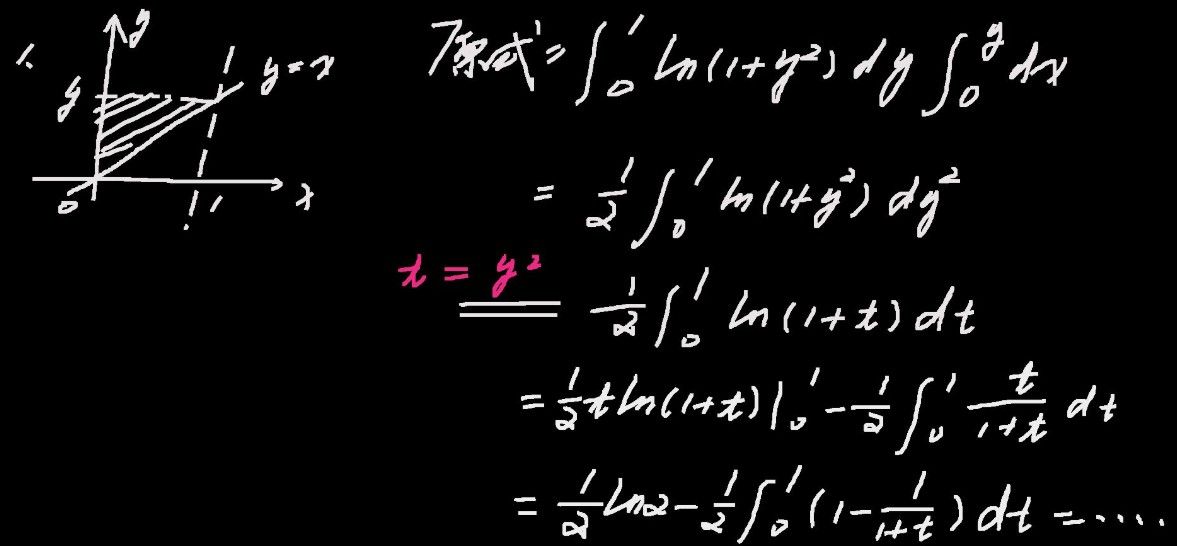 1、
y
y
y=x
0
1
x
原式=∫₀¹ ln(1+y²)dy∫₀ʸ dx
= 1/2 ∫₀¹ ln(1+y²) dy²
t = y²
1/2 ∫₀¹ ln(1+t) dt
= 1/2 t ln(1+t)|₀¹ - 1/2 ∫₀¹ t/(1+t) dt
= 1/2 ln2 - 1/2 ∫₀¹ (1 - 1/(1+t)) dt = ·····